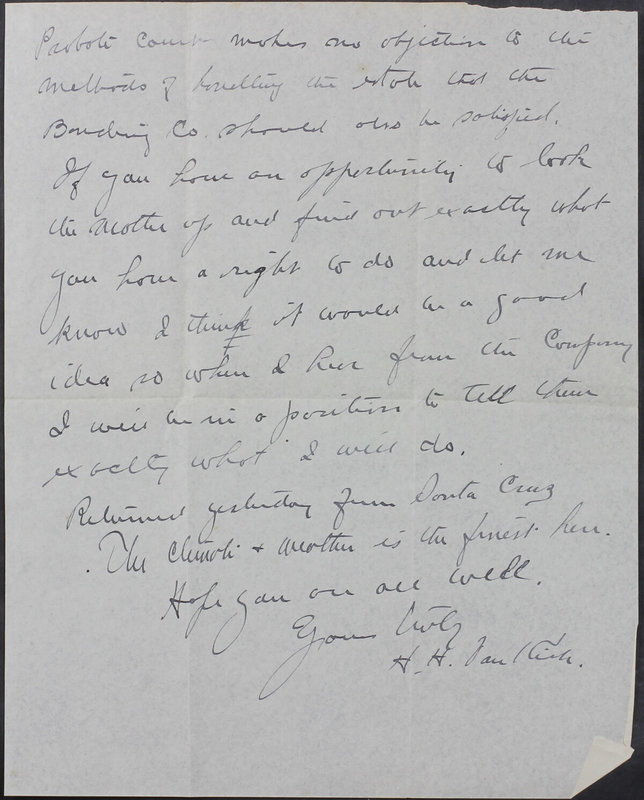 Probate Court makes no objection to the
methods of handling the estate that the
Bonding Co. should also be satisfied.
If you have an opportunity to look
the matter up and find out exactly what
you have a right to do and let me
know I think it would be a good
idea so when I hear from the Company
I will be in a position to tell them
exactly what I will do.
Returned yesterday from Santa Cruz
. The climate + weather is the finest here.
Hope you are all well.
Yours truly
H. H. Van